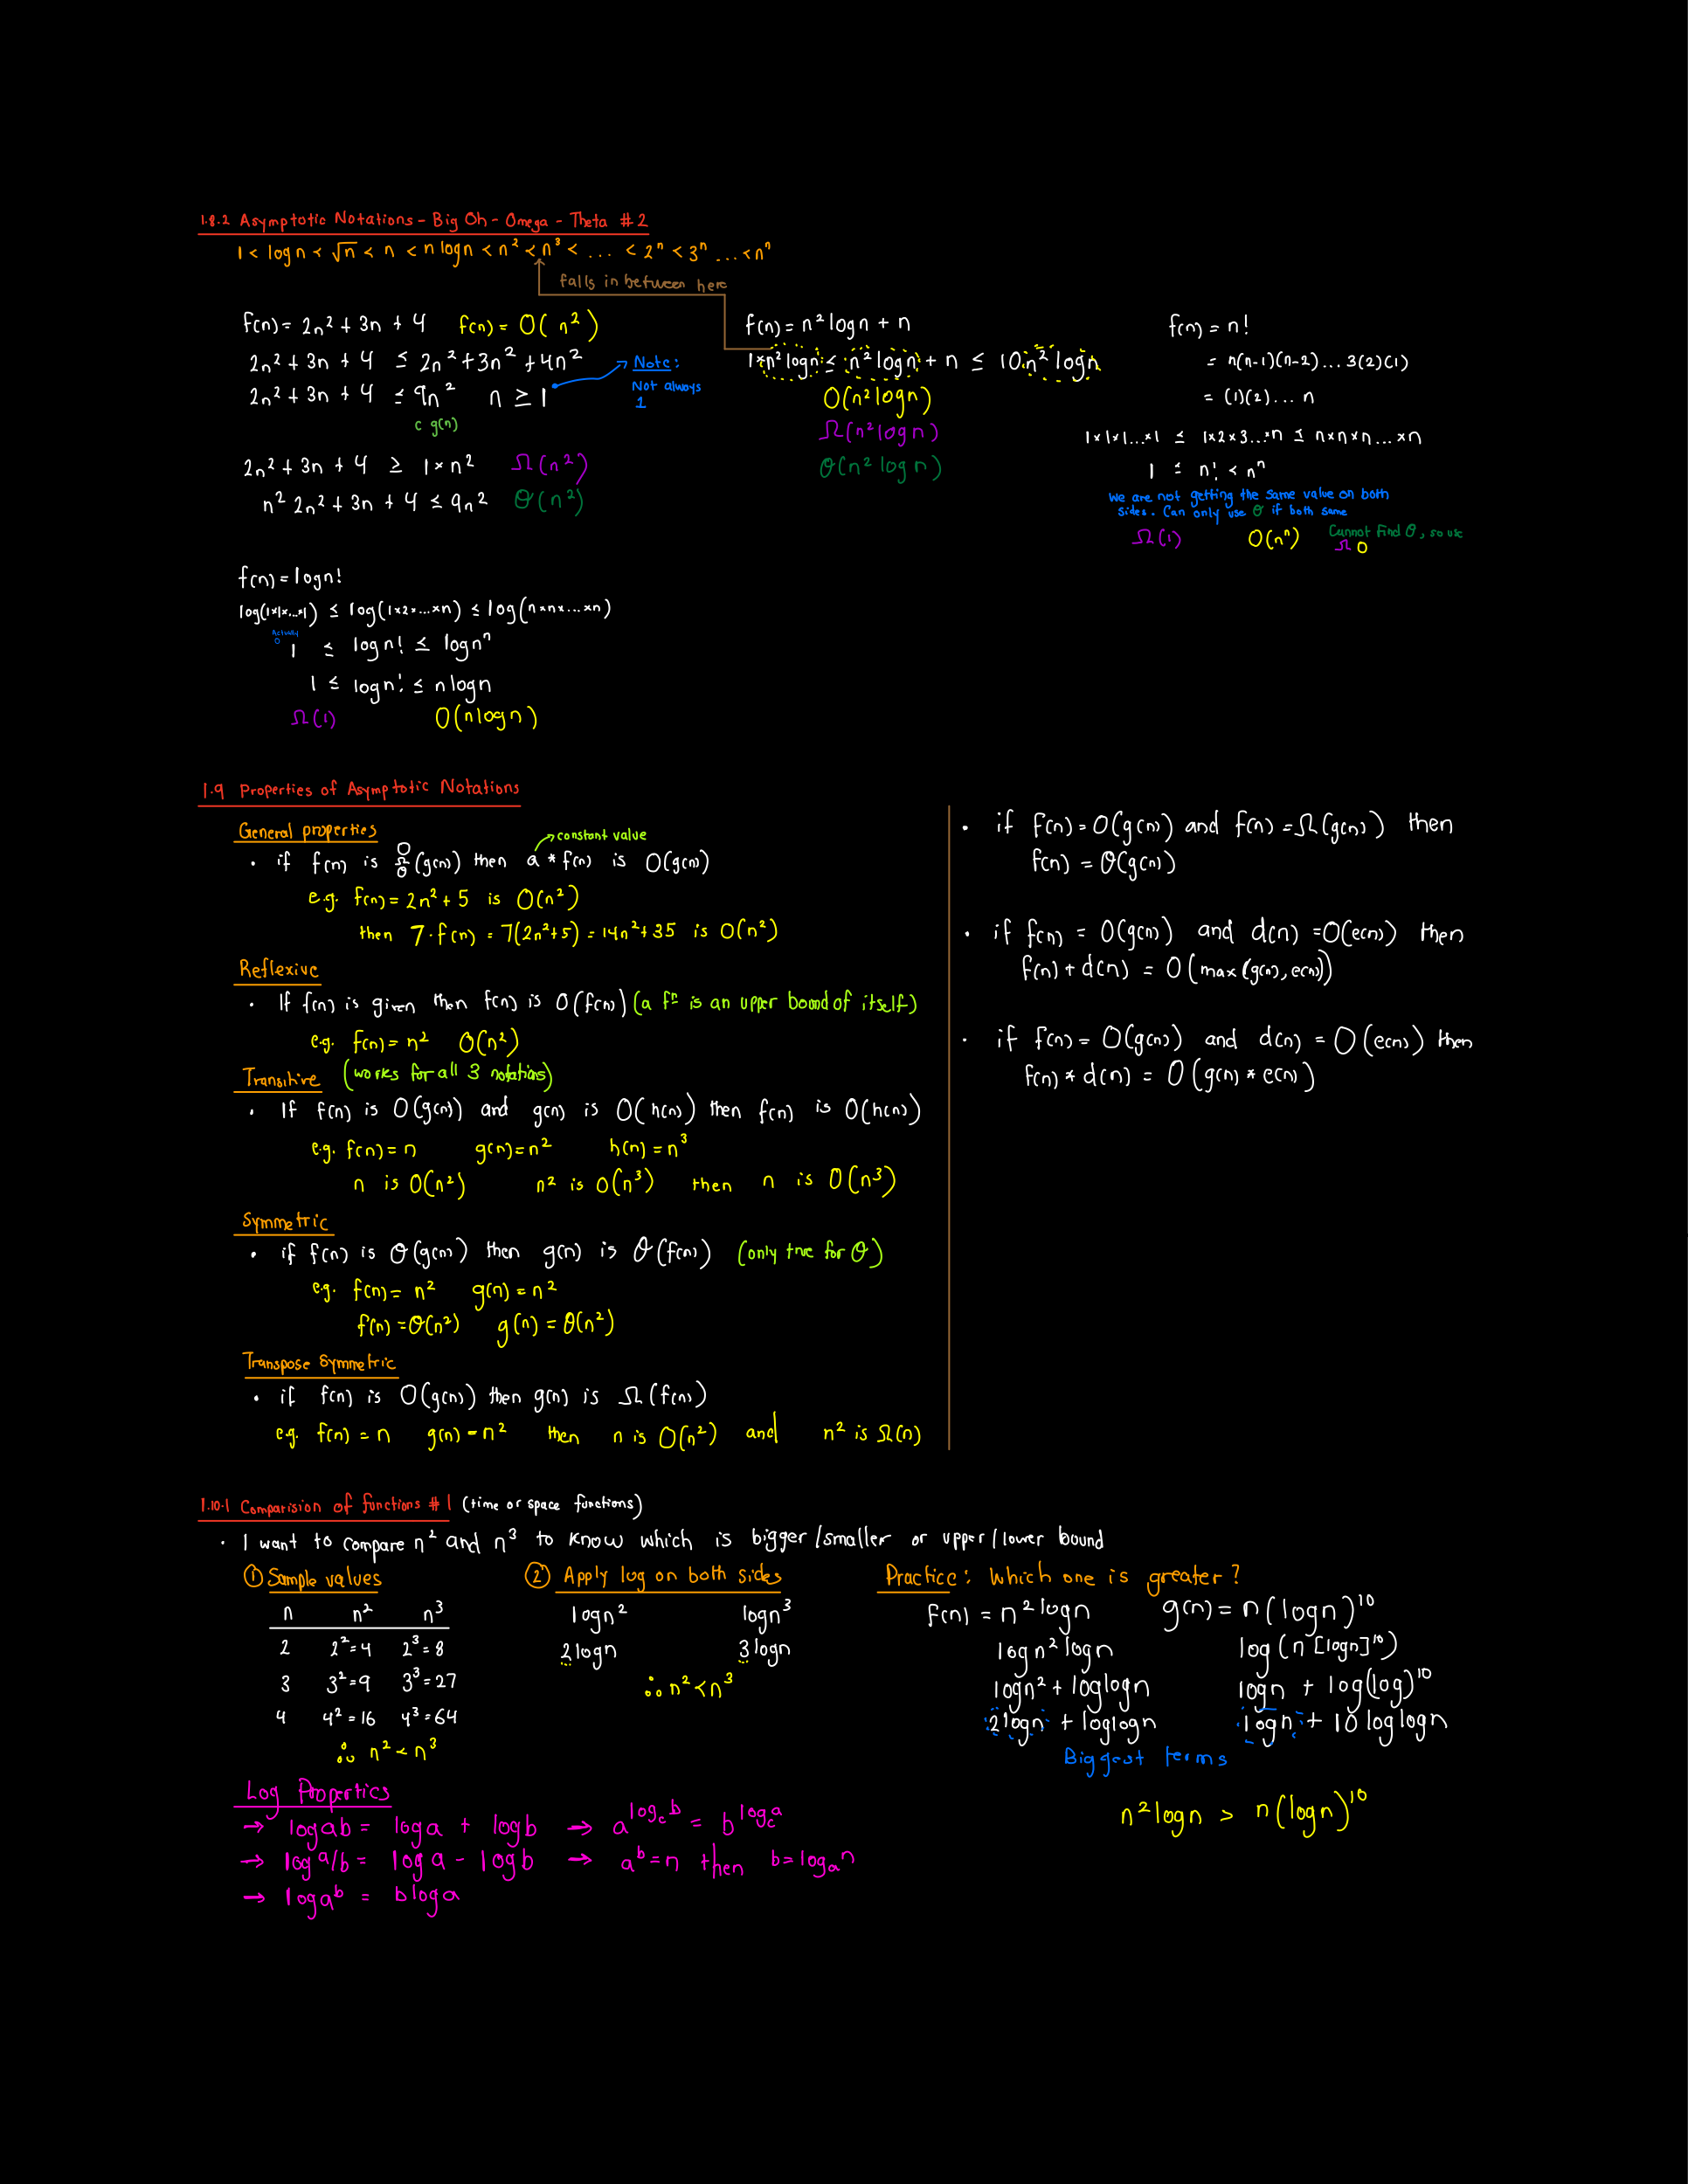 1.8.2 Asymptotic Notations - Big Oh - Omega - Theta #2
1 < log n < √n < n < n log n < n² < n³ < ... < 2ⁿ < 3ⁿ ... < nⁿ
falls in between here
f(n) = 2n² + 3n + 4 f(n) = O(n²)
2n² + 3n + 4 ≤ 2n² + 3n² + 4n²
2n² + 3n + 4 ≤ 9n² n ≥ 1
c g(n)
Note:
Not always
1
2n² + 3n + 4 ≥ 1 × n² Ω(n²)
n² 2n² + 3n + 4 ≤ 9n² Θ(n²)
f(n) = n² log n + n
1 * n² log n ≤ n² log n + n ≤ 10 n² log n
O(n² log n)
Ω(n² log n)
Θ(n² log n)
f(n) = n!
= n(n-1)(n-2)... 3(2)(1)
= (1)(2)... n
1×1×1...×1 ≤ 1×2×3...×n ≤ n×n×n...×n
1 ≤ n! < nⁿ
We are not getting the same value on both
sides. Can only use Θ if both same
Ω(1) O(nⁿ)
Cannot find Θ, so use
Ω O
f(n) = log n!
log(1×1×...×1) ≤ log(1×2×...×n) ≤ log(n×n×...×n)
Actually
0
1 ≤ log n! ≤ log nⁿ
1 ≤ log n! ≤ n log n
Ω(1) O(n log n)
1.9 Properties of Asymptotic Notations
General properties
constant value
• if f(n) is O Ω Θ (g(n)) then a * f(n) is O(g(n))
e.g. f(n) = 2n² + 5 is O(n²)
then 7·f(n) = 7(2n²+5) = 14n² + 35 is O(n²)
Reflexive
• If f(n) is given then f(n) is O(f(n)) (a fⁿ is an upper bound of itself)
e.g. f(n) = n² O(n²)
Transitive (works for all 3 notations)
• If f(n) is O(g(n)) and g(n) is O(h(n)) then f(n) is O(h(n))
e.g. f(n) = n g(n) = n² h(n) = n³
n is O(n²) n² is O(n³) then n is O(n³)
Symmetric
• if f(n) is Θ(g(n)) then g(n) is Θ(f(n)) (only true for Θ)
e.g. f(n) = n² g(n) = n²
f(n) = Θ(n²) g(n) = Θ(n²)
Transpose Symmetric
• if f(n) is O(g(n)) then g(n) is Ω(f(n))
e.g. f(n) = n g(n) = n² then n is O(n²) and n² is Ω(n)
• if f(n) = O(g(n)) and f(n) = Ω(g(n)) then
f(n) = Θ(g(n))
• if f(n) = O(g(n)) and d(n) = O(e(n)) then
f(n) + d(n) = O(max(g(n), e(n)))
• if f(n) = O(g(n)) and d(n) = O(e(n)) then
f(n) * d(n) = O(g(n) * e(n))
1.10.1 Comparision of functions #1 (time or space functions)
• I want to compare n² and n³ to know which is bigger/smaller or upper/lower bound
① Sample values
n n² n³
2 2²=4 2³=8
3 3²=9 3³=27
4 4²=16 4³=64
∴ n² < n³
② Apply log on both sides
log n² log n³
2 log n 3 log n
∴ n² < n³
Practice: Which one is greater?
f(n) = n² log n g(n) = n(log n)¹⁰
log n² log n log(n [log n]¹⁰)
log n² + log log n log n + log(log)¹⁰
2 log n + log log n log n + 10 log log n
Biggest terms
n² log n > n(log n)¹⁰
Log Properties
→ log ab = log a + log b → a^(log_c b) = b^(log_c a)
→ log a/b = log a - log b → a^b = n then b = log_a n
→ log a^b = b log a